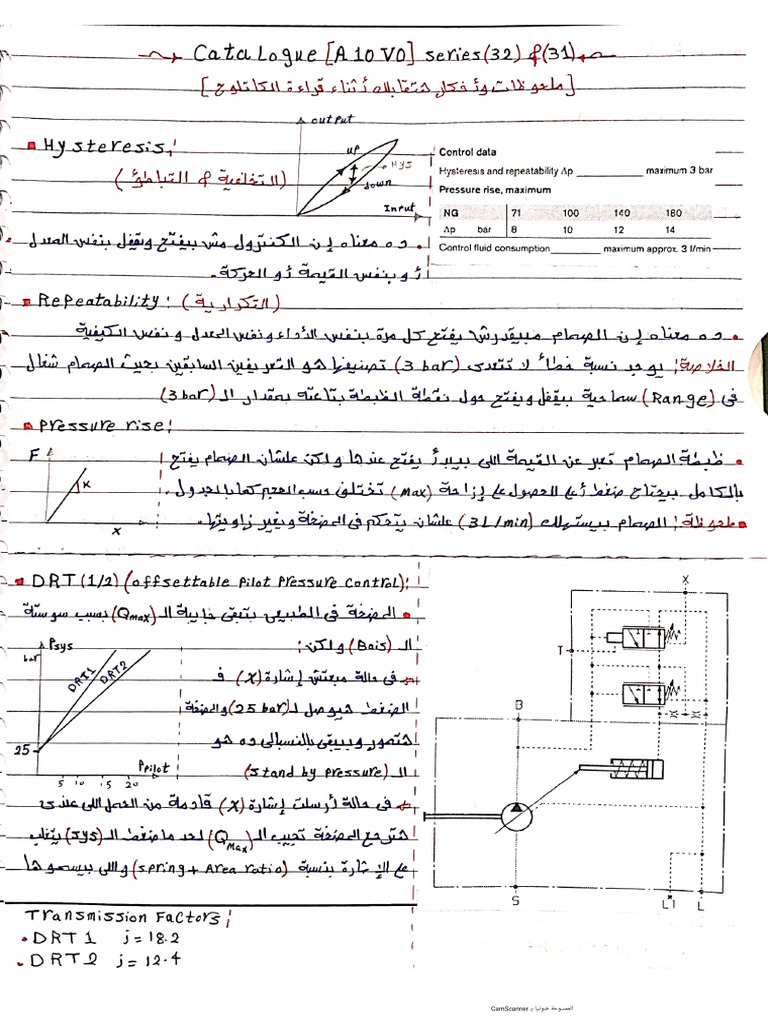 Catalogue [A10VO] series(32) & (31)
[ملحوظات وأفكار هتقابلك أثناء قراءة الكاتلوج]
Hysteresis:
(التخلفية & التباطؤ)
output
up
Hys
down
Input
Control data
Hysteresis and repeatability Δp maximum 3 bar
Pressure rise, maximum
NG 71 100 140 180
Δp bar 8 10 12 14
Control fluid consumption maximum approx. 3 l/min
ده معناه إن الكنترول مش بيفتح ويقفل بنفس المعدل
أو بنفس القيمة أو الحركة.
Repeatability: (التكرارية)
ده معناه إن الصمام مبيقدرش يفتح كل مرة بنفس الأداء ونفس المعدل ونفس الكيفية
الخلاصة: يوجد نسبة خطأ لا تتعدى (3 bar) تصنيفها هو التعريفين السابقين بحيث الصمام شغال
فى (Range) سماحية بيقفل ويفتح حول نقطة الظبطة بتاعته بمقدار الـ (3 bar)
Pressure rise:
F
K
x
ظبطة الصمام تعبر عن القيمة اللى بيبدأ يفتح عندها ولكن علشان الصمام يفتح
بالكامل بيحتاج ضغط أعلى للحصول على إزاحة (max) تختلف حسب الحجم كما بالجدول.
ملحوظة: الصمام بيستهلك (3 L/min) علشان يتحكم فى المضخة ويغير زاويتها.
DRT (1/2) (offsettable Pilot Pressure Control):
المضخة فى الطبيعى بتبقى جايبة الـ (Qmax) بسبب سوستة
الـ (Bais) ولكن:
Psys
bar
DRT1
DRT2
25
Ppilot
5 10 15 20
فى حالة مبعتش إشارة (X) ف
الضغط هيوصل لـ (25 bar) والمضخة
هتصفر ويبقى بالنسبالى ده هو
الـ (stand by pressure)
فى حالة أرسلت إشارة (X) قادمة من الحمل اللى عندى
هترجع المضخة تجيب الـ (Qmax) لحد ما ضغط الـ (sys) يتغلب
على الإشارة بنسبة (spring + Area ratio) واللى بيسموها
Transmission Factors:
DRT 1 j = 18.2
DRT 2 j = 12.4
X
T
B
S
L1
L
الممسوحة ضوئيا بـ CamScanner